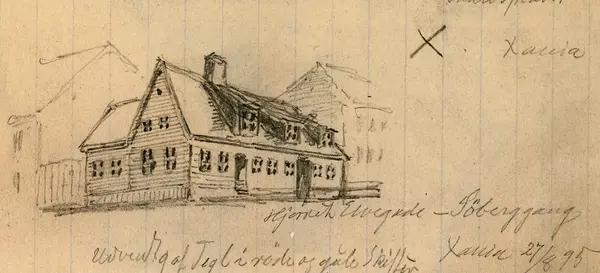 X Xania
Hjørnet Elvegade – Töberggang
Udvendig af Tegl i røde og gule Skifter
Xania 27/4 95